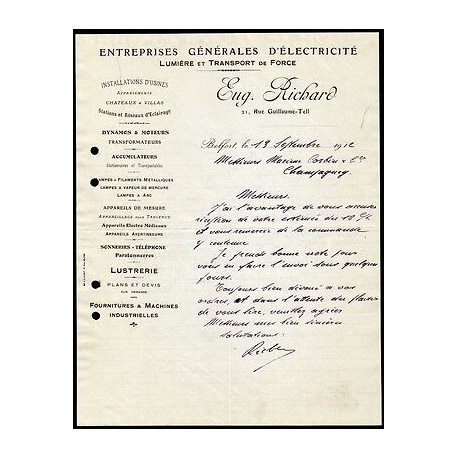 ENTREPRISES GÉNÉRALES D'ÉLECTRICITÉ
LUMIÈRE ET TRANSPORT DE FORCE
INSTALLATIONS D'USINES
APPARTEMENTS
CHATEAUX & VILLAS
Stations et Réseaux d'Eclairage
DYNAMOS & MOTEURS
TRANSFORMATEURS
ACCUMULATEURS
Stationnaires et Transportables
LAMPES A FILAMENTS MÉTALLIQUES
LAMPES A VAPEUR DE MERCURE
LAMPES A ARC
APPAREILS DE MESURE
APPAREILLAGE POUR TABLEAUX
Appareils Electro Médicaux
APPAREILS AVERTISSEURS
SONNERIES - TÉLÉPHONE
Paratonnerres
LUSTRERIE
PLANS ET DEVIS
SUR DEMANDE
FOURNITURES & MACHINES
INDUSTRIELLES
Eug. Richard
21, RUE GUILLAUME-TELL
Belfort, le 13 Septembre 1912
Messieurs Maxime & Cie
Champagney
Messieurs,
J'ai l'avantage de vous accuser
réception de votre estimée du 12 Ct
et vous remercie de la commande
y contenue
Je prends bonne note pour
vous en faire l'envoi sous quelques
jours.
Toujours bien dévoué à vos
ordres, et dans l'attente du plaisir
de vous lire, veuillez agréer
Messieurs mes bien sincères
salutations.